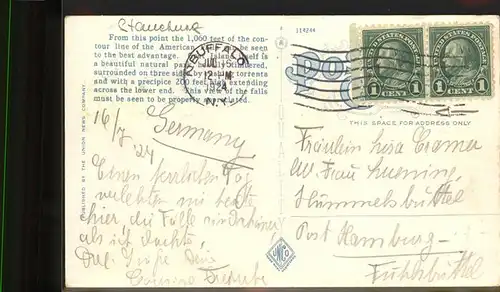 From this point the 1,060 feet of the con-
tour line of the American Falls can be seen
to the best advantage. Island itself is
a beautiful natural park
surrounded on three sides torrents
and with a precipice 200 feet high extending
across the lower end. this view of the falls
must be seen to be properly appreciated.
114244
BUFFALO
JUL 16
12 M
1924
N.Y.
UNITED STATES POSTAGE
1 CENT 1
UNITED STATES POSTAGE
1 CENT 1
POST
THIS SPACE FOR ADDRESS ONLY
PUBLISHED BY THE UNION NEWS COMPANY
16/7 24
Germany
Einen herrlichen Tag
verlebten wir heute
hier, die Fälle sind schöner
als ich dachte.
Grüße Dein
Fräulein Lisa Cramer
Frau
Hummelsbüttel
Post Hamburg-
Fuhlsbüttel